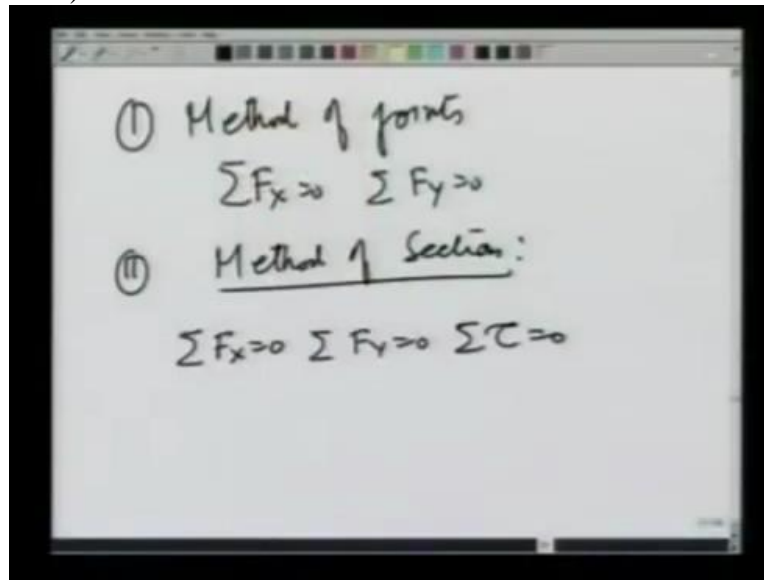 ① Method of joints
ΣFx=0 ΣFy=0
② Method of Section:
ΣFx=0 ΣFy=0 Στ=0